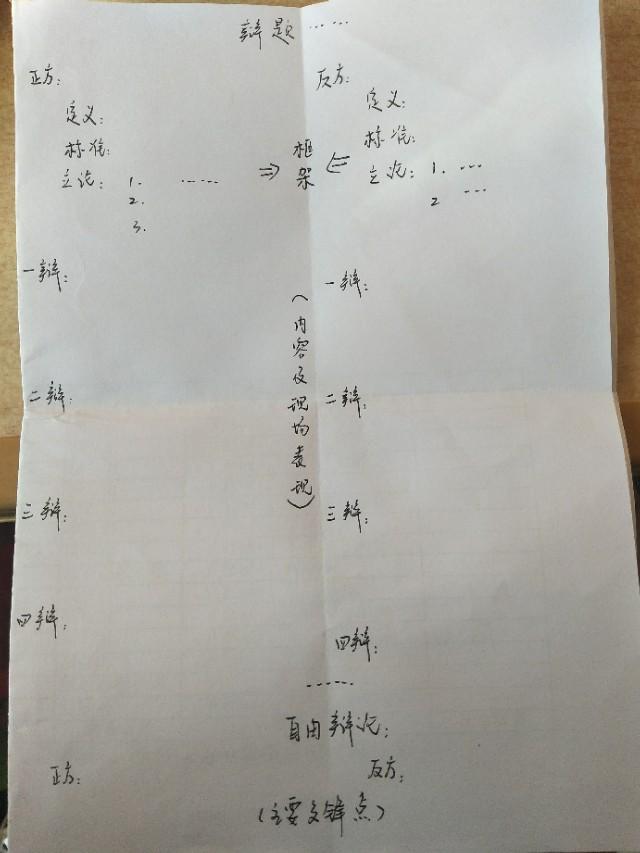 辩题……
正方：
定义：
标准：
立论：1. ……
2.
3.
⇒ 框架 ⇐
反方：
定义：
标准：
立论：1. …
2 …
一辩：
一辩：
(内容及现场表现)
二辩：
二辩：
三辩：
三辩：
四辩：
四辩：
……
自由辩论：
正方：
反方：
(主要交锋点)